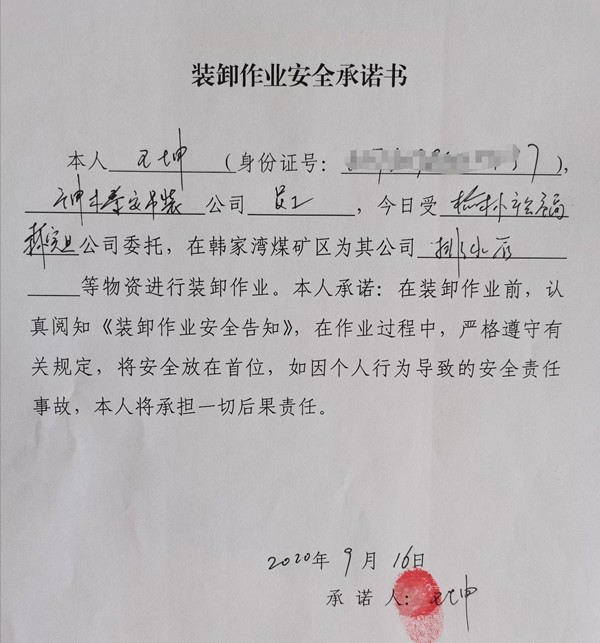 装卸作业安全承诺书
本人 王坤 (身份证号: 37),
坤 吊装 公司 员工 ,今日受 榆林
公司委托,在韩家湾煤矿区为其公司 排水
等物资进行装卸作业。本人承诺:在装卸作业前,认
真阅知《装卸作业安全告知》,在作业过程中,严格遵守有
关规定,将安全放在首位,如因个人行为导致的安全责任
事故,本人将承担一切后果责任。
2020年 9 月 16日
承 诺 人: 王坤